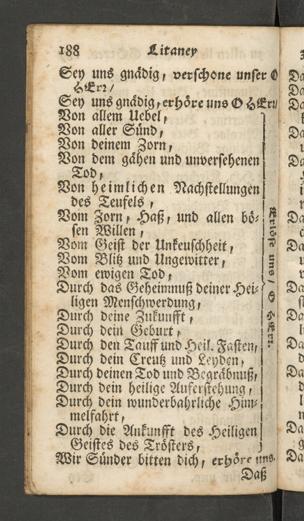 188 Litaney
Sey uns gnädig, verschone unser O
HErr/
Sey uns gnädig, erhöre uns O HErr/
Von allem Uebel,
Von aller Sünd,
Von deinem Zorn,
Von dem gähen und unversehenen
Tod,
Von heimlichen Nachstellungen
des Teufels,
Vom Zorn, Haß, und allen bö-
sen Willen,
Vom Geist der Unkeuschheit,
Vom Blitz und Ungewitter,
Vom ewigen Tod,
Durch das Geheimnuß deiner Hei-
ligen Menschwerdung,
Durch deine Zukunfft,
Durch dein Geburt,
Durch den Tauff und Heil. Fasten,
Durch dein Creutz und Leyden,
Durch deinen Tod und Begräbnuß,
Durch dein heilige Auferstehung,
Durch dein wunderbahrliche Him-
melfahrt,
Durch die Ankunfft des Heiligen
Geistes des Trösters,
Erlöse uns/ O HErr.
Wir Sünder bitten dich, erhöre uns.
Daß